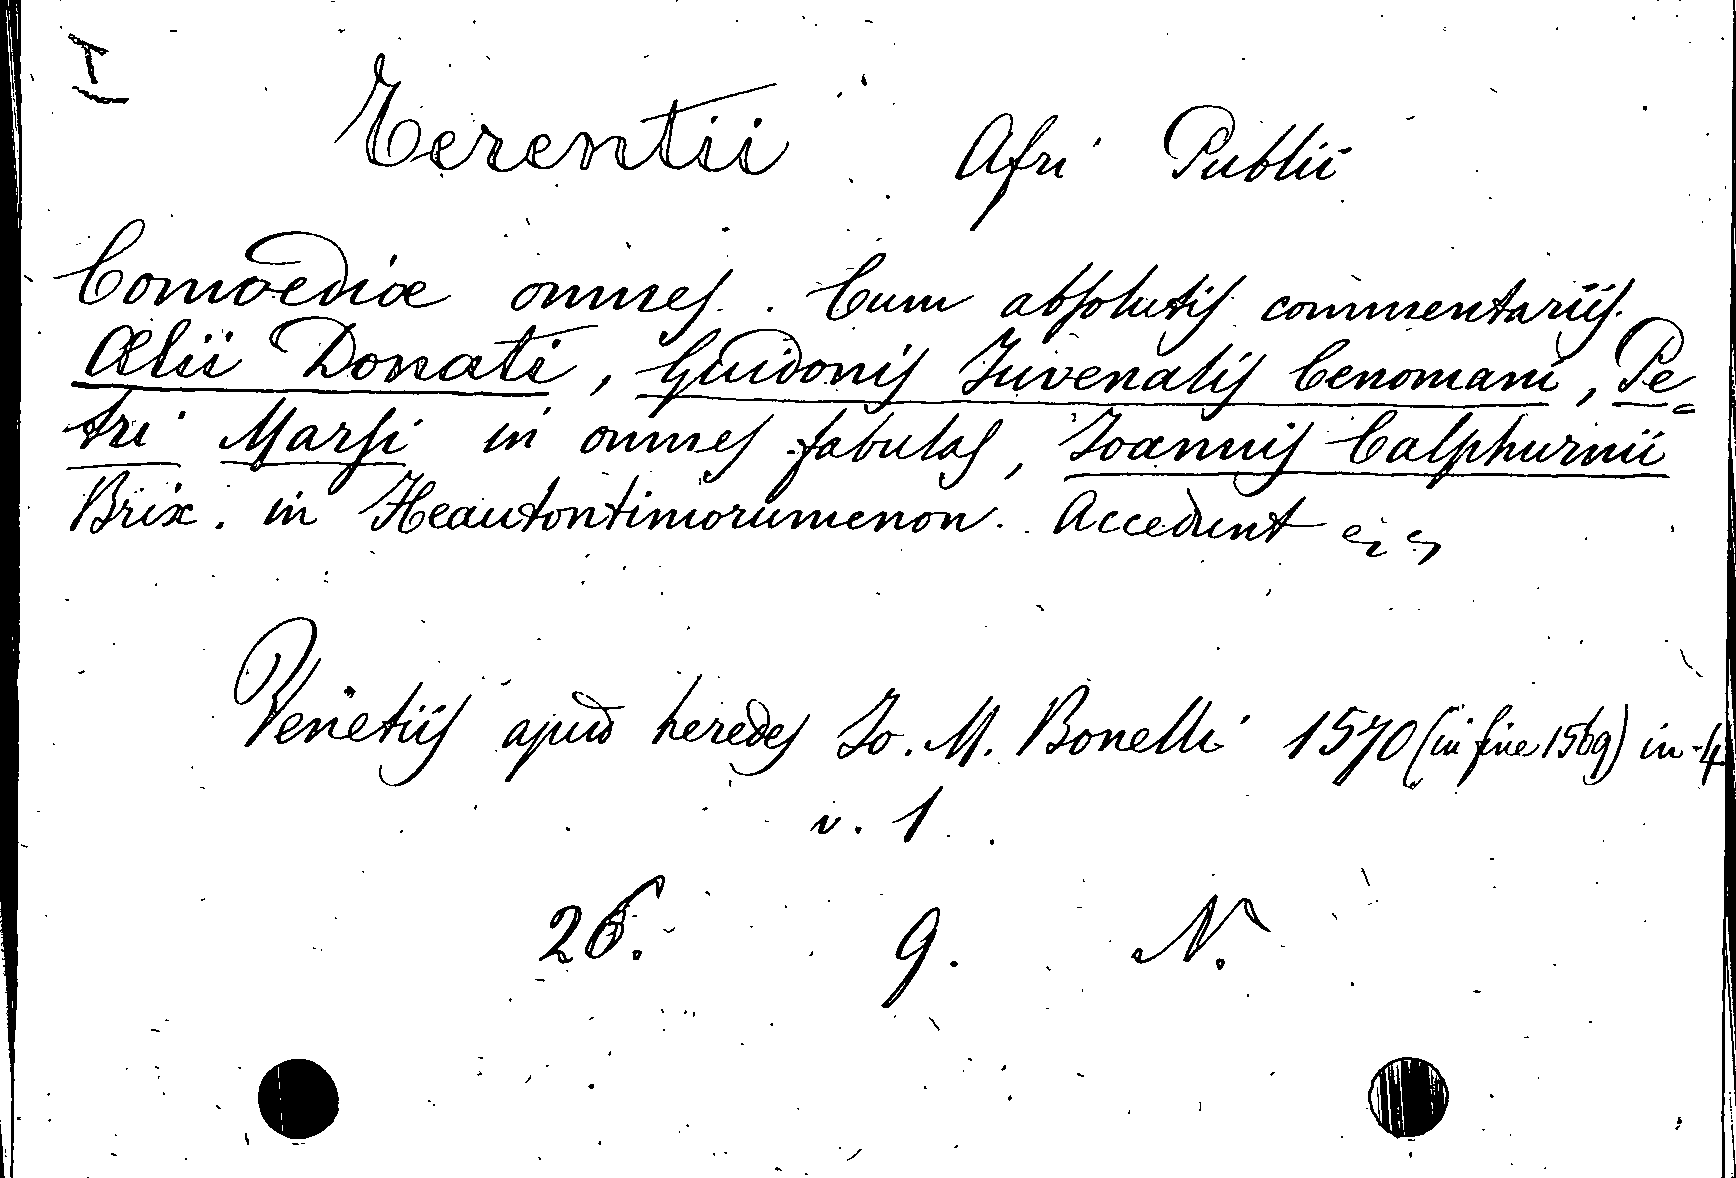 I
Terentii Afri Publii
Comoediæ omnes. Cum absolutis commentariis.
Ælii Donati, Guidonis Iuvenalis Cenomani, Pe=
tri Marsi in omnes fabulas, Ioannis Calphurnii
Brix. in Heautontimorumenon. Accedunt
Venetiis apud heredes Io. M. Bonelli 1570 (in fine 1569) in-4
v. 1
26. 9. N.